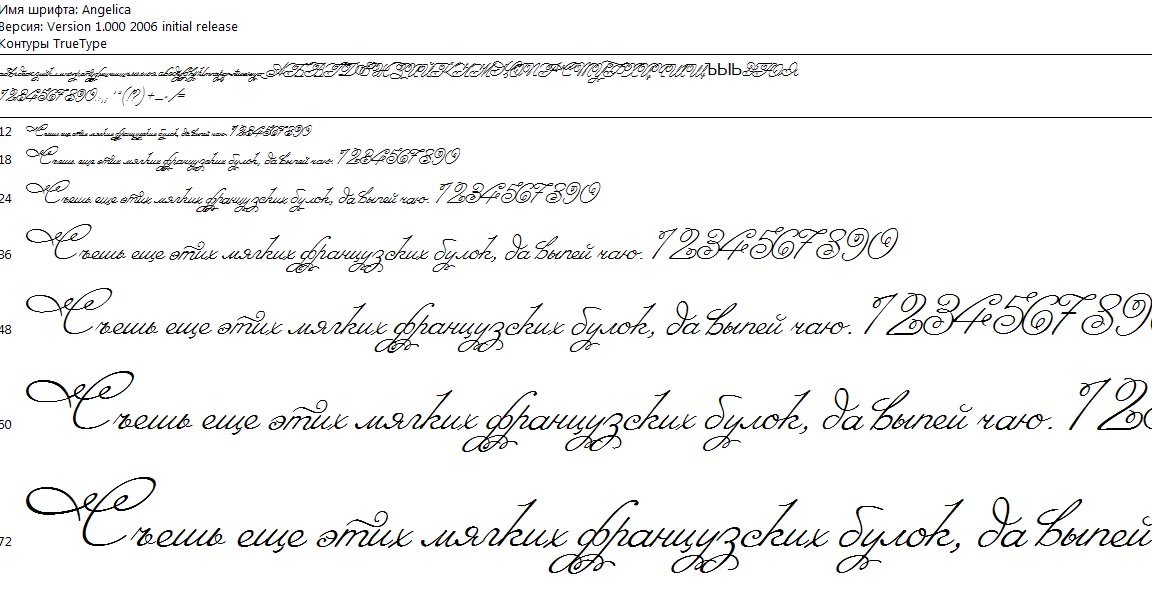 Имя шрифта: Angelica
Версия: Version 1.000 2006 initial release
Контуры TrueType
1234567890.:,; ' " (!?) +-*/=
12 Съешь еще этих мягких французских булок, да выпей чаю. 1234567890
18 Съешь еще этих мягких французских булок, да выпей чаю. 1234567890
24 Съешь еще этих мягких французских булок, да выпей чаю. 1234567890
36 Съешь еще этих мягких французских булок, да выпей чаю. 1234567890
48 Съешь еще этих мягких французских булок, да выпей чаю. 123456789
60 Съешь еще этих мягких французских булок, да выпей чаю. 12
72 Съешь еще этих мягких французских булок, да выпей